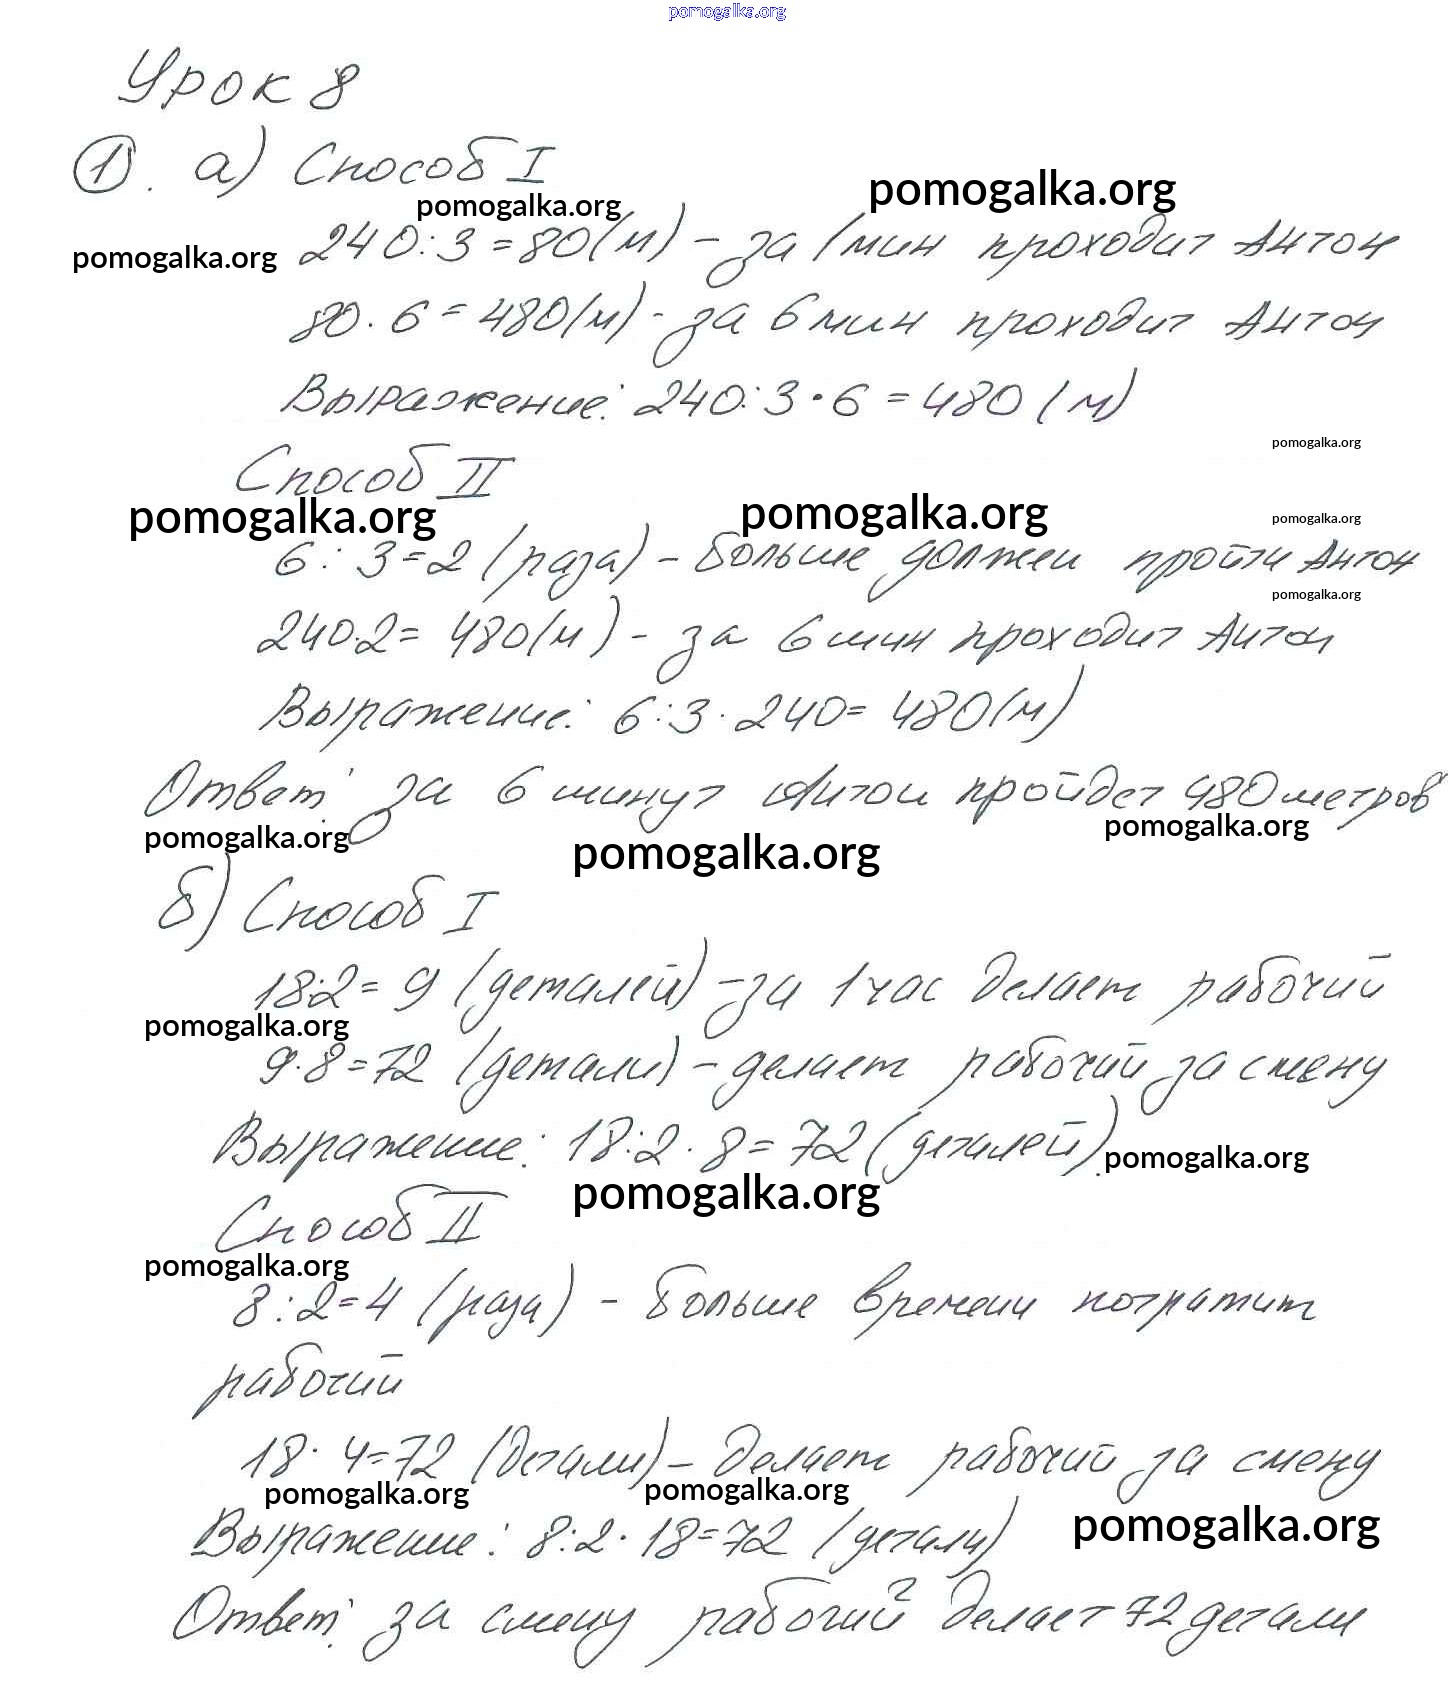 pomogalka.org
Урок 8
1. а) Способ I
pomogalka.org
pomogalka.org
pomogalka.org
240:3=80(м) – за 1 мин проходит Антон
80·6=480(м) - за 6 мин проходит Антон
Выражение: 240:3·6=480 (м)
pomogalka.org
Способ II
pomogalka.org
pomogalka.org
pomogalka.org
6:3=2 (раза) – больше должен пройти Антон
pomogalka.org
240·2=480(м) - за 6 мин проходит Антон
Выражение: 6:3·240=480(м)
Ответ: за 6 минут Антон пройдет 480 метров
pomogalka.org
pomogalka.org
pomogalka.org
б) Способ I
18:2=9 (деталей) – за 1 час делает рабочий
pomogalka.org
9·8=72 (детали) – делает рабочий за смену
Выражение: 18:2·8=72 (деталей).
pomogalka.org
pomogalka.org
Способ II
pomogalka.org
8:2=4 (раза) - больше времени потратит
рабочий
18·4=72 (детали) – делает рабочий за смену
pomogalka.org
pomogalka.org
pomogalka.org
Выражение: 8:2·18=72 (детали)
Ответ: за смену рабочий делает 72 детали